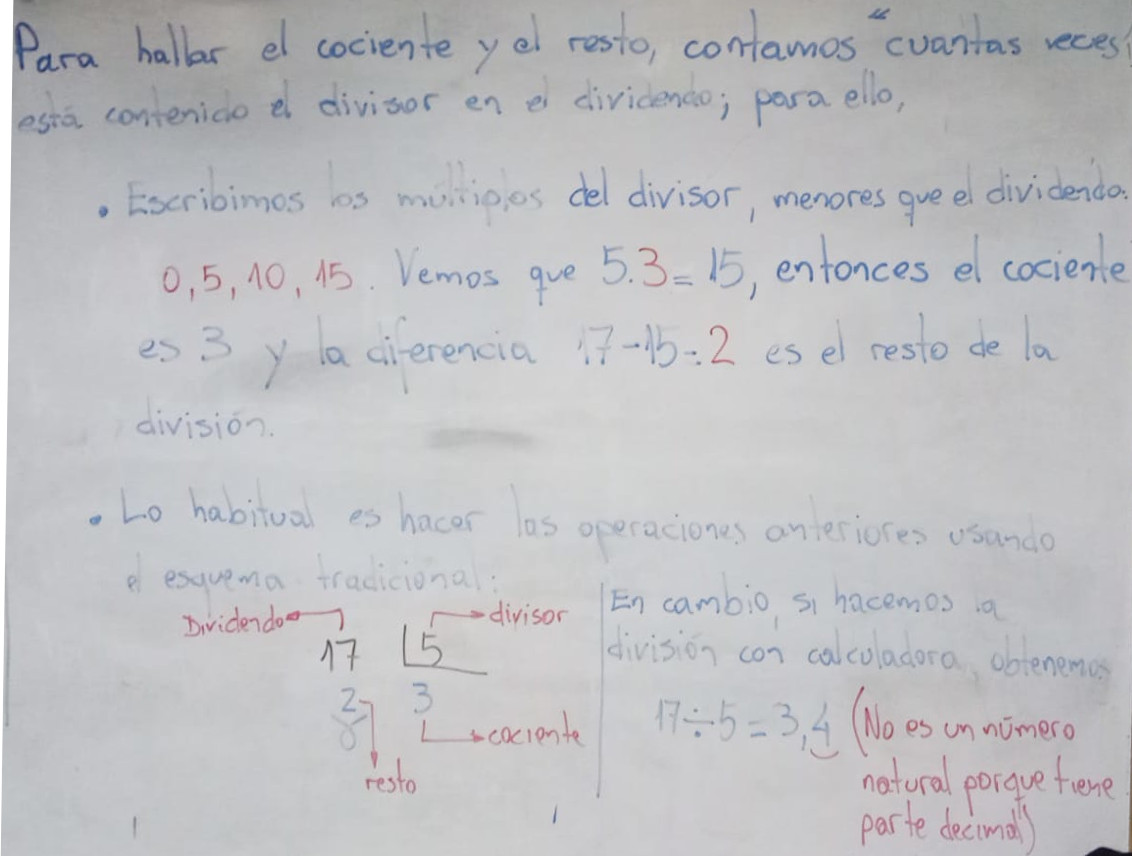 Para hallar el cociente y el resto, contamos "cuantas veces"
está contenido el divisor en el dividendo; para ello,
• Escribimos los múltiplos del divisor, menores que el dividendo:
0, 5, 10, 15. Vemos que 5.3=15, entonces el cociente
es 3 y la diferencia 17-15=2 es el resto de la
división.
• Lo habitual es hacer las operaciones anteriores usando
el esquema tradicional:
Dividendo
divisor
17 5
2 3
cociente
resto
En cambio, si hacemos la
división con calculadora, obtenemos
17÷5=3,4 (No es un número
natural porque tiene
parte decimal)